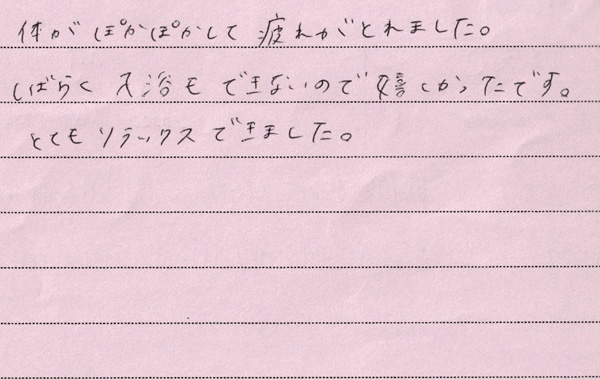 体がぽかぽかして疲れがとれました。
しばらく入浴もできないので嬉しかったです。
とてもリラックスできました。